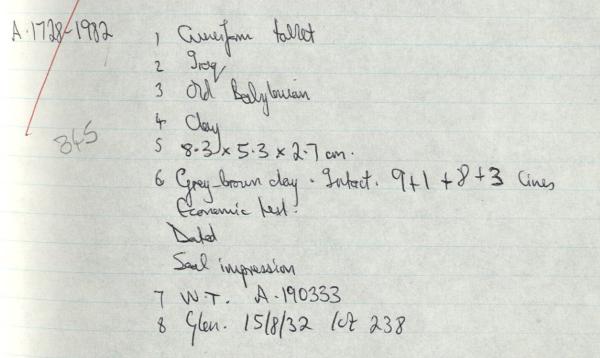 A.1728-1982 1 Cuneiform tablet
2 Iraq
3 Old Babylonian
4 Clay
845
5 8.3 x 5.3 x 2.7 cm.
6 Grey-brown clay. Intact. 9+1+8+3 lines
Economic text.
Dated
Seal impression
7 W.T. A.190333
8 Glen. 15/8/32 lot 238